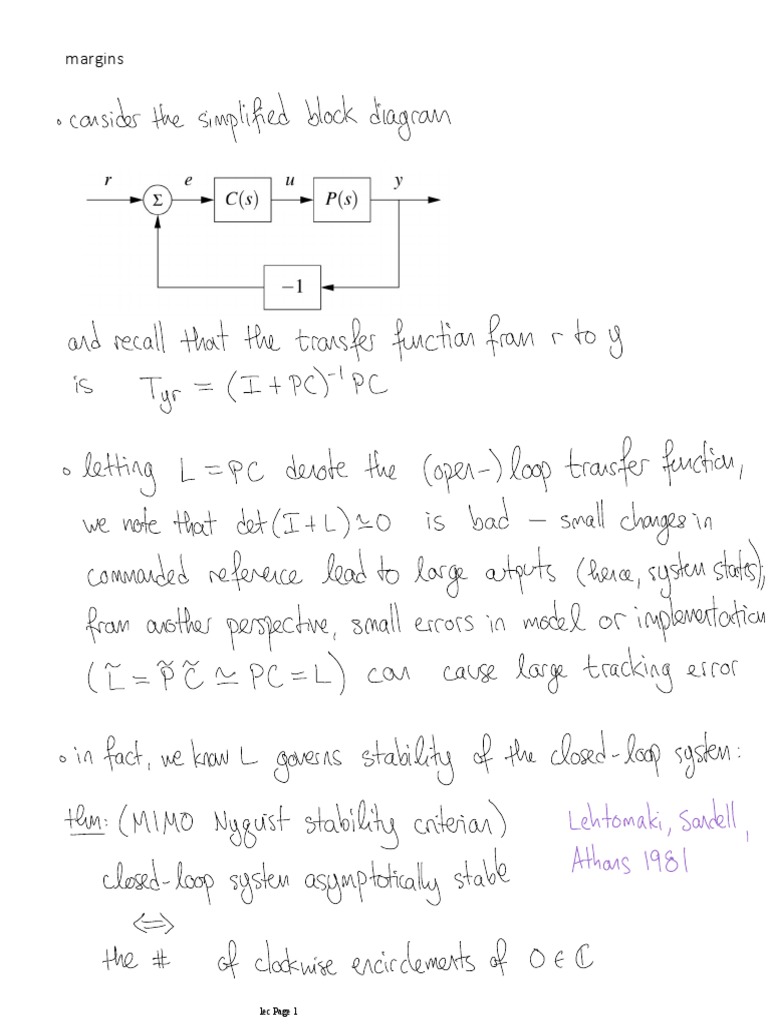 margins
• consider the simplified block diagram
r e u y
Σ C(s) P(s)
−1
and recall that the transfer function from r to y
is Tyr = (I + PC)⁻¹ PC
• letting L = PC denote the (open-) loop transfer function,
we note that det(I + L) ≃ 0 is bad – small changes in
commanded reference lead to large outputs (hence, system states),
from another perspective, small errors in model or implementation
(L̃ = P̃ C̃ ≃ PC = L) can cause large tracking error
• in fact, we know L governs stability of the closed-loop system:
thm: (MIMO Nyquist stability criterion) Lehtomaki, Sandell,
closed-loop system asymptotically stable Athans 1981
⇔
the # of clockwise encirclements of 0 ∈ ℂ
lec Page 1